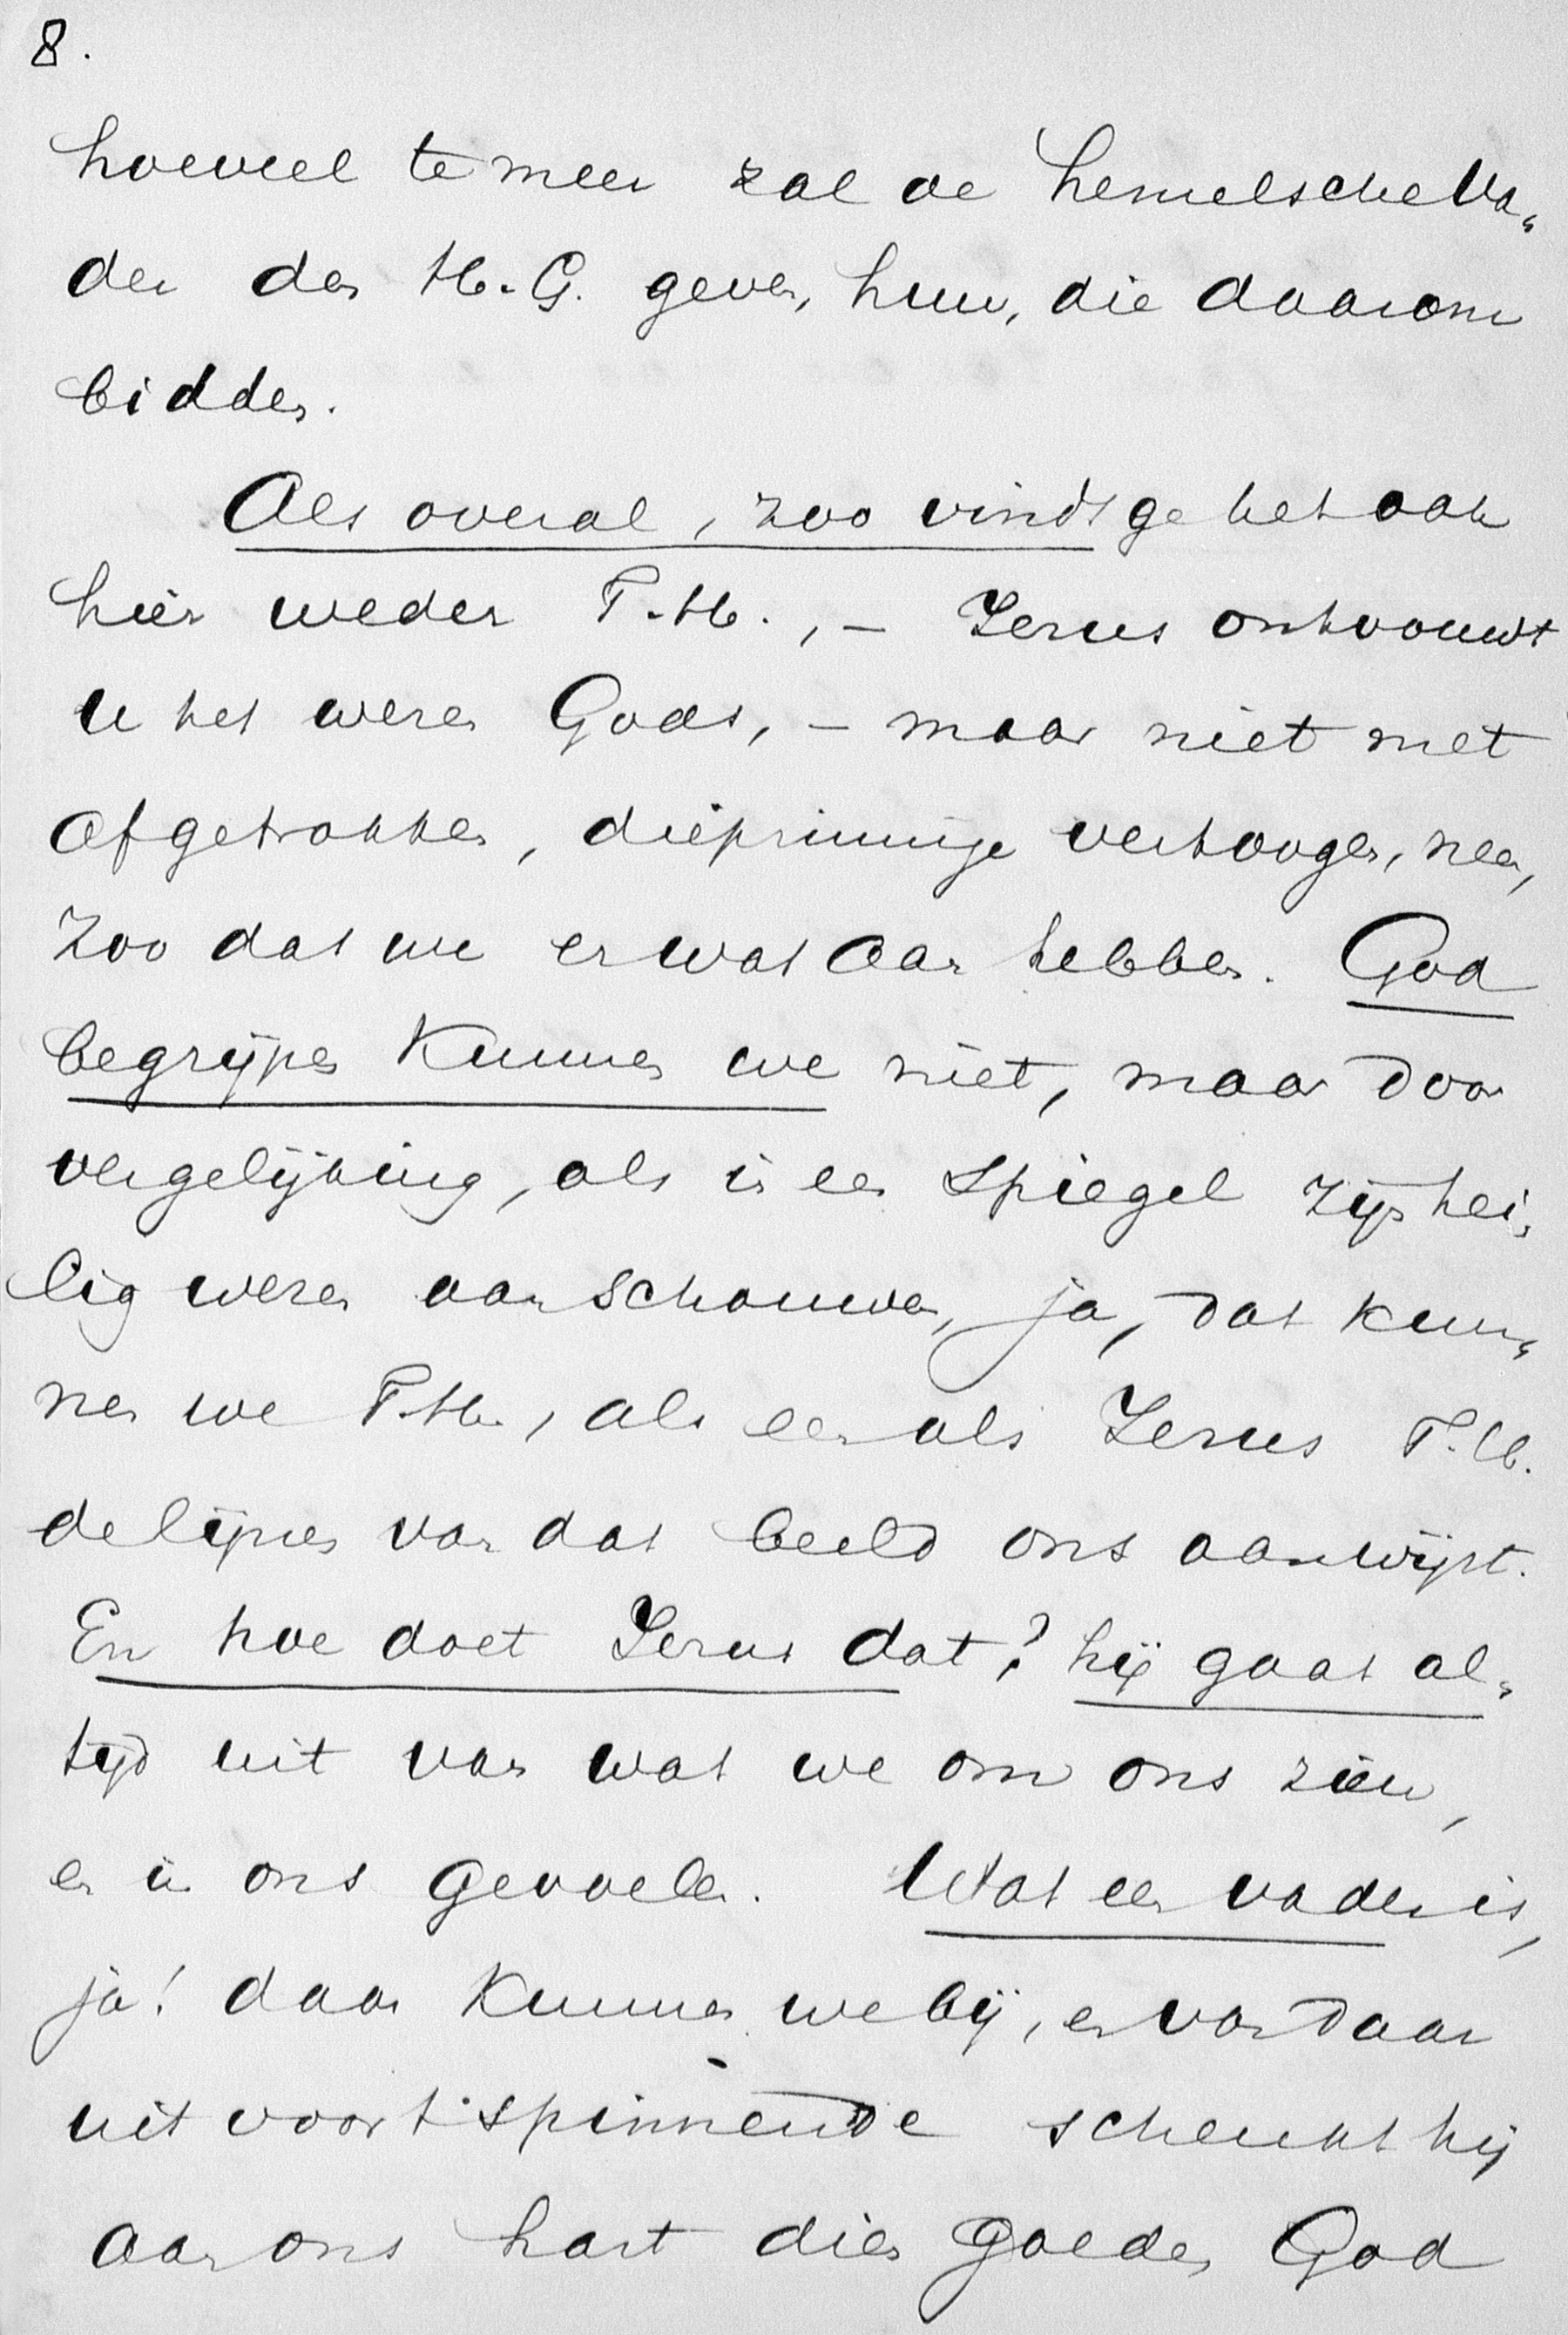 8.
hoeveel te meer zal de hemelsche Va„
der den H. G. geven, hun, die daarom
bidden.
Als overal, zoo vindt ge het ook
hier weder T. H., – Jezus ontvouwt
u het wezen Gods, – maar niet met
afgetrokken, diepzinnige vertoogen, neen,
zoo dat we er wat aan hebben. God
begrijpen kunnen we niet, maar door
vergelijking, als in een spiegel zijn hei„
lig wezen aanschouwen, ja, dat kun„
nen we T. H., als een als Jezus T. H.
de lijnen van dat beeld ons aanwijst.
En hoe doet Jezus dat? hij gaat al„
tijd uit van wat we om ons zien,
en in ons gevoelen. Wat een vader is,
ja! daar kunnen we bij, en van daar
uit voortspinnende schenkt hij
aan ons hart dien goeden God